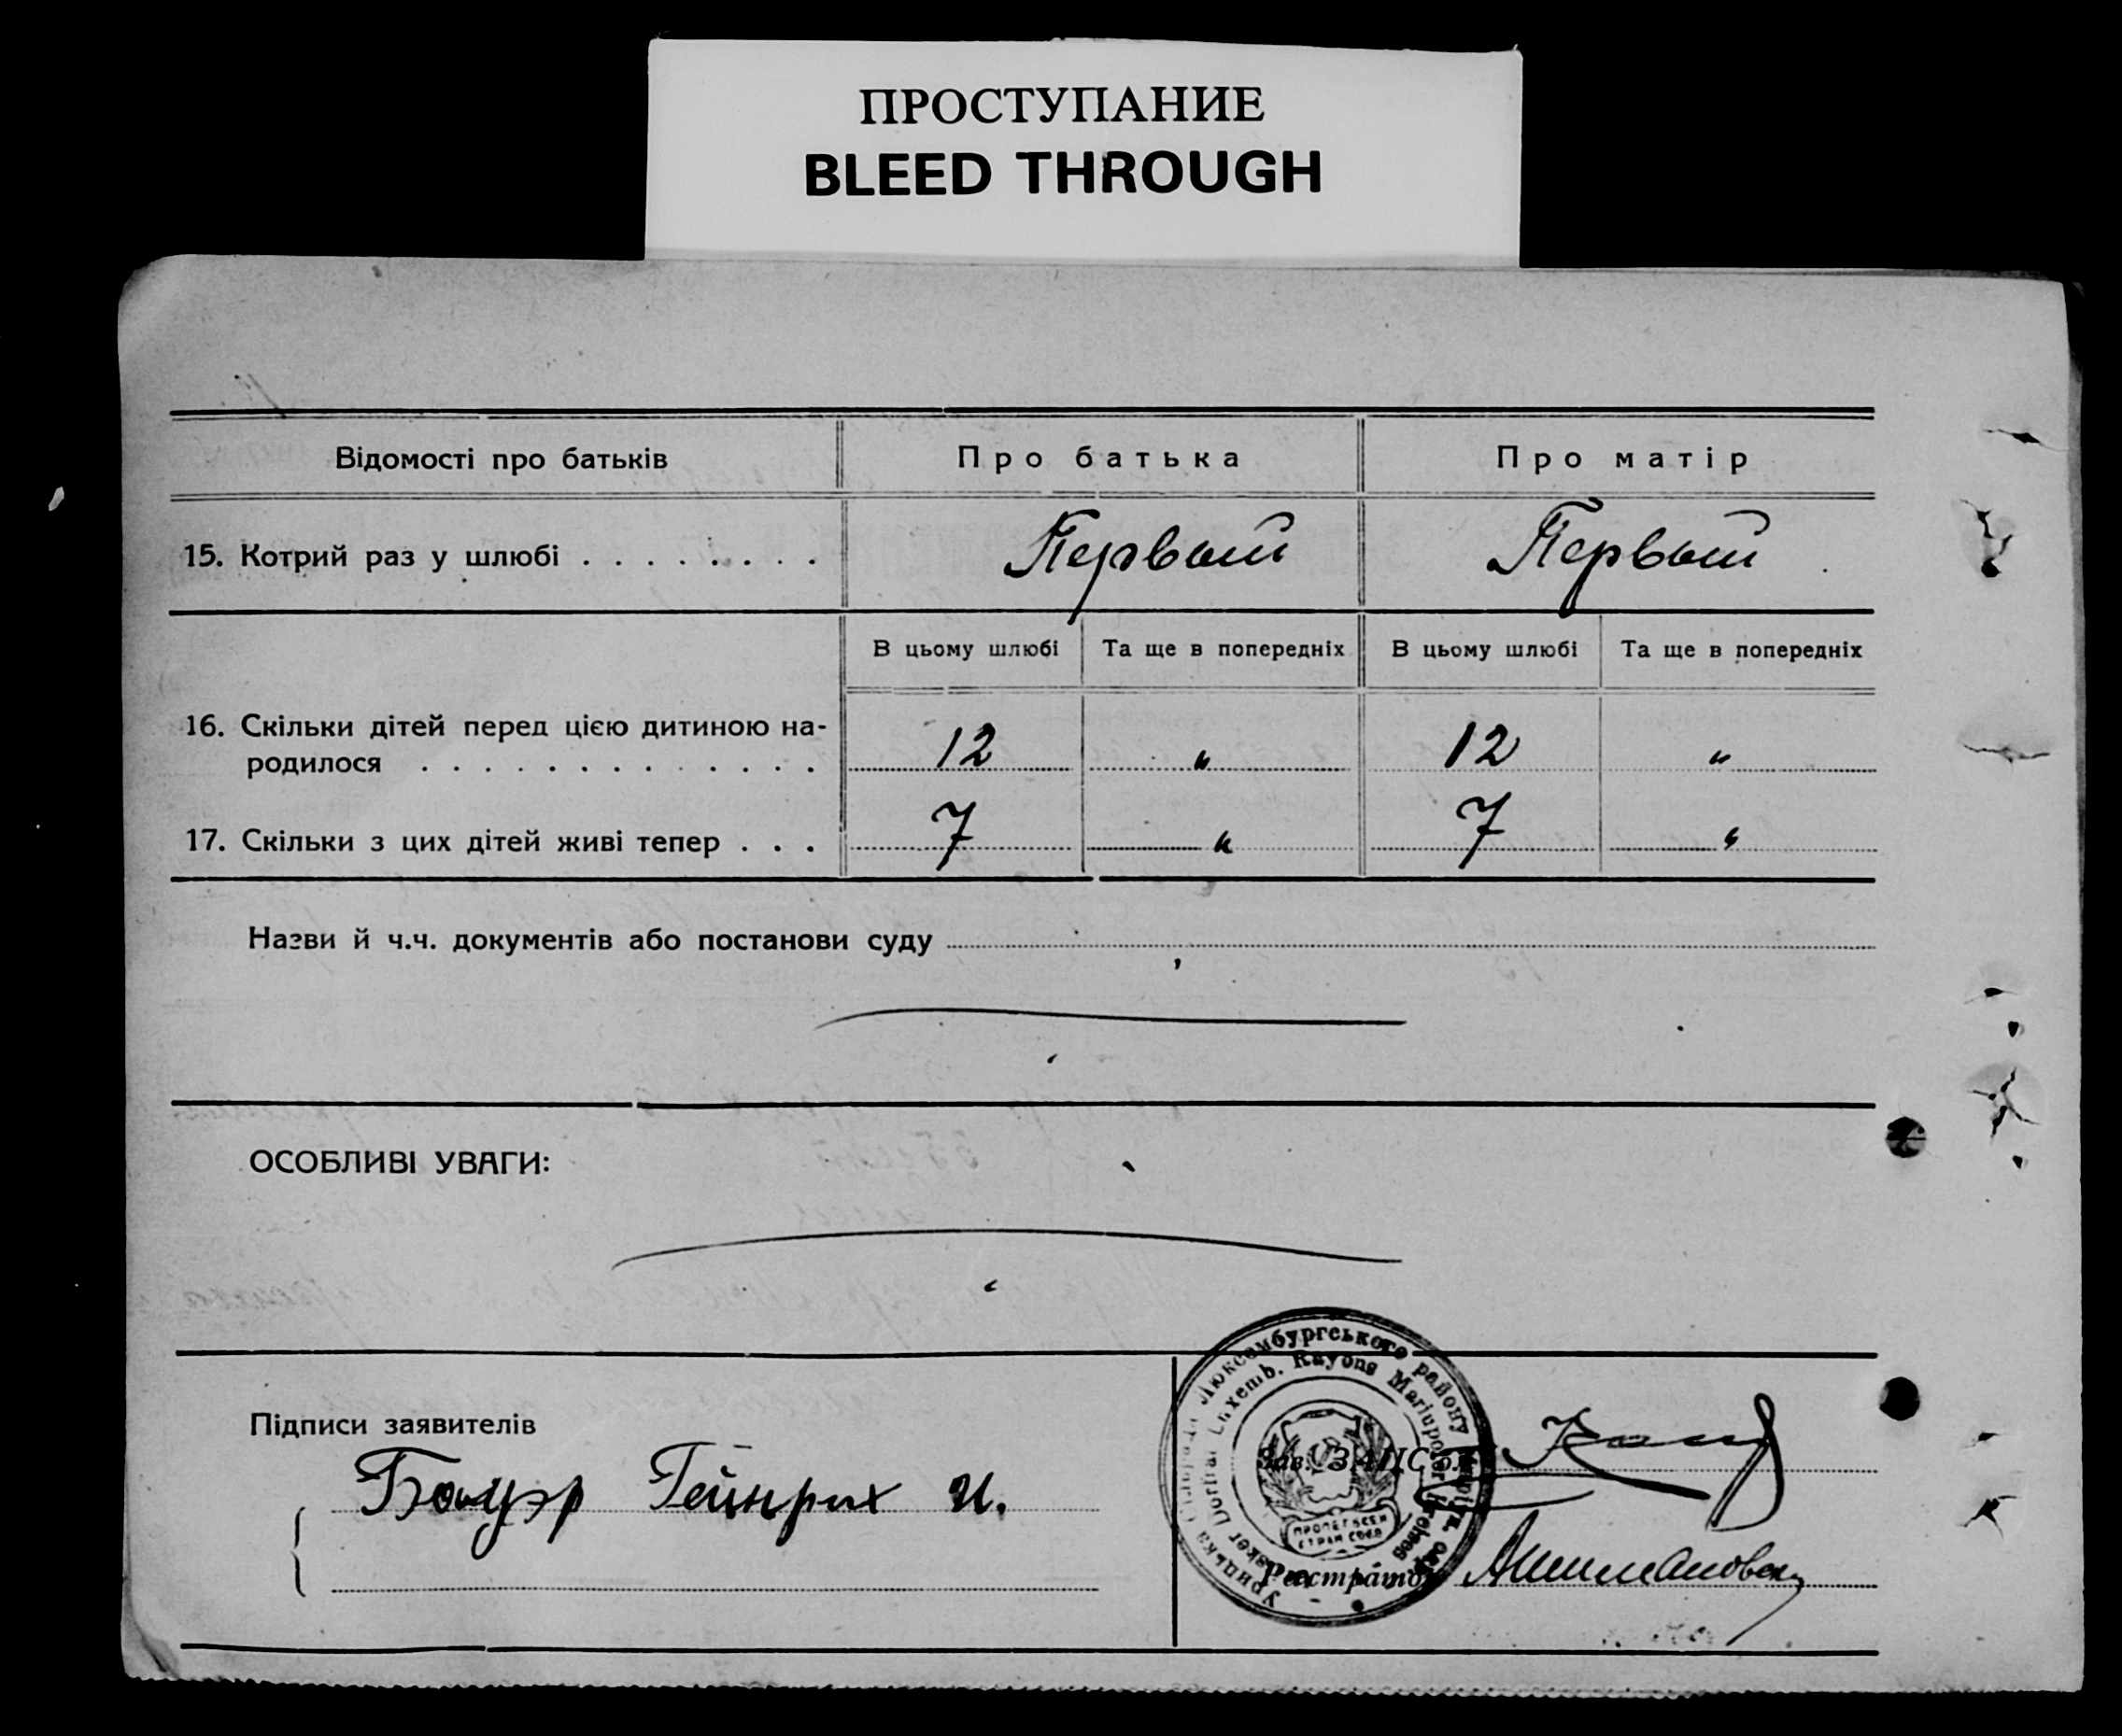 ПРОСТУПАНИЕ
BLEED THROUGH
Відомості про батьків Про батька Про матір
15. Котрий раз у шлюбі . . . . . . . . Первый Первый
В цьому шлюбі Та ще в попередніх В цьому шлюбі Та ще в попередніх
16. Скільки дітей перед цією дитиною на-
родилося . . . . . . . . . . . . . . 12 " 12 "
17. Скільки з цих дітей живі тепер . . . 7 " 7 "
Назви й ч.ч. документів або постанови суду
ОСОБЛИВІ УВАГИ:
Люксембургського району
Luxemb. Rayons Mariupoler Kreises
ПРОЛЕТ ВСЕХ
СТРАН СОЕД
Підписи заявителів
Зав. ЗАЦС'ом
Бауэр Гейнрих И.
Реєстратор